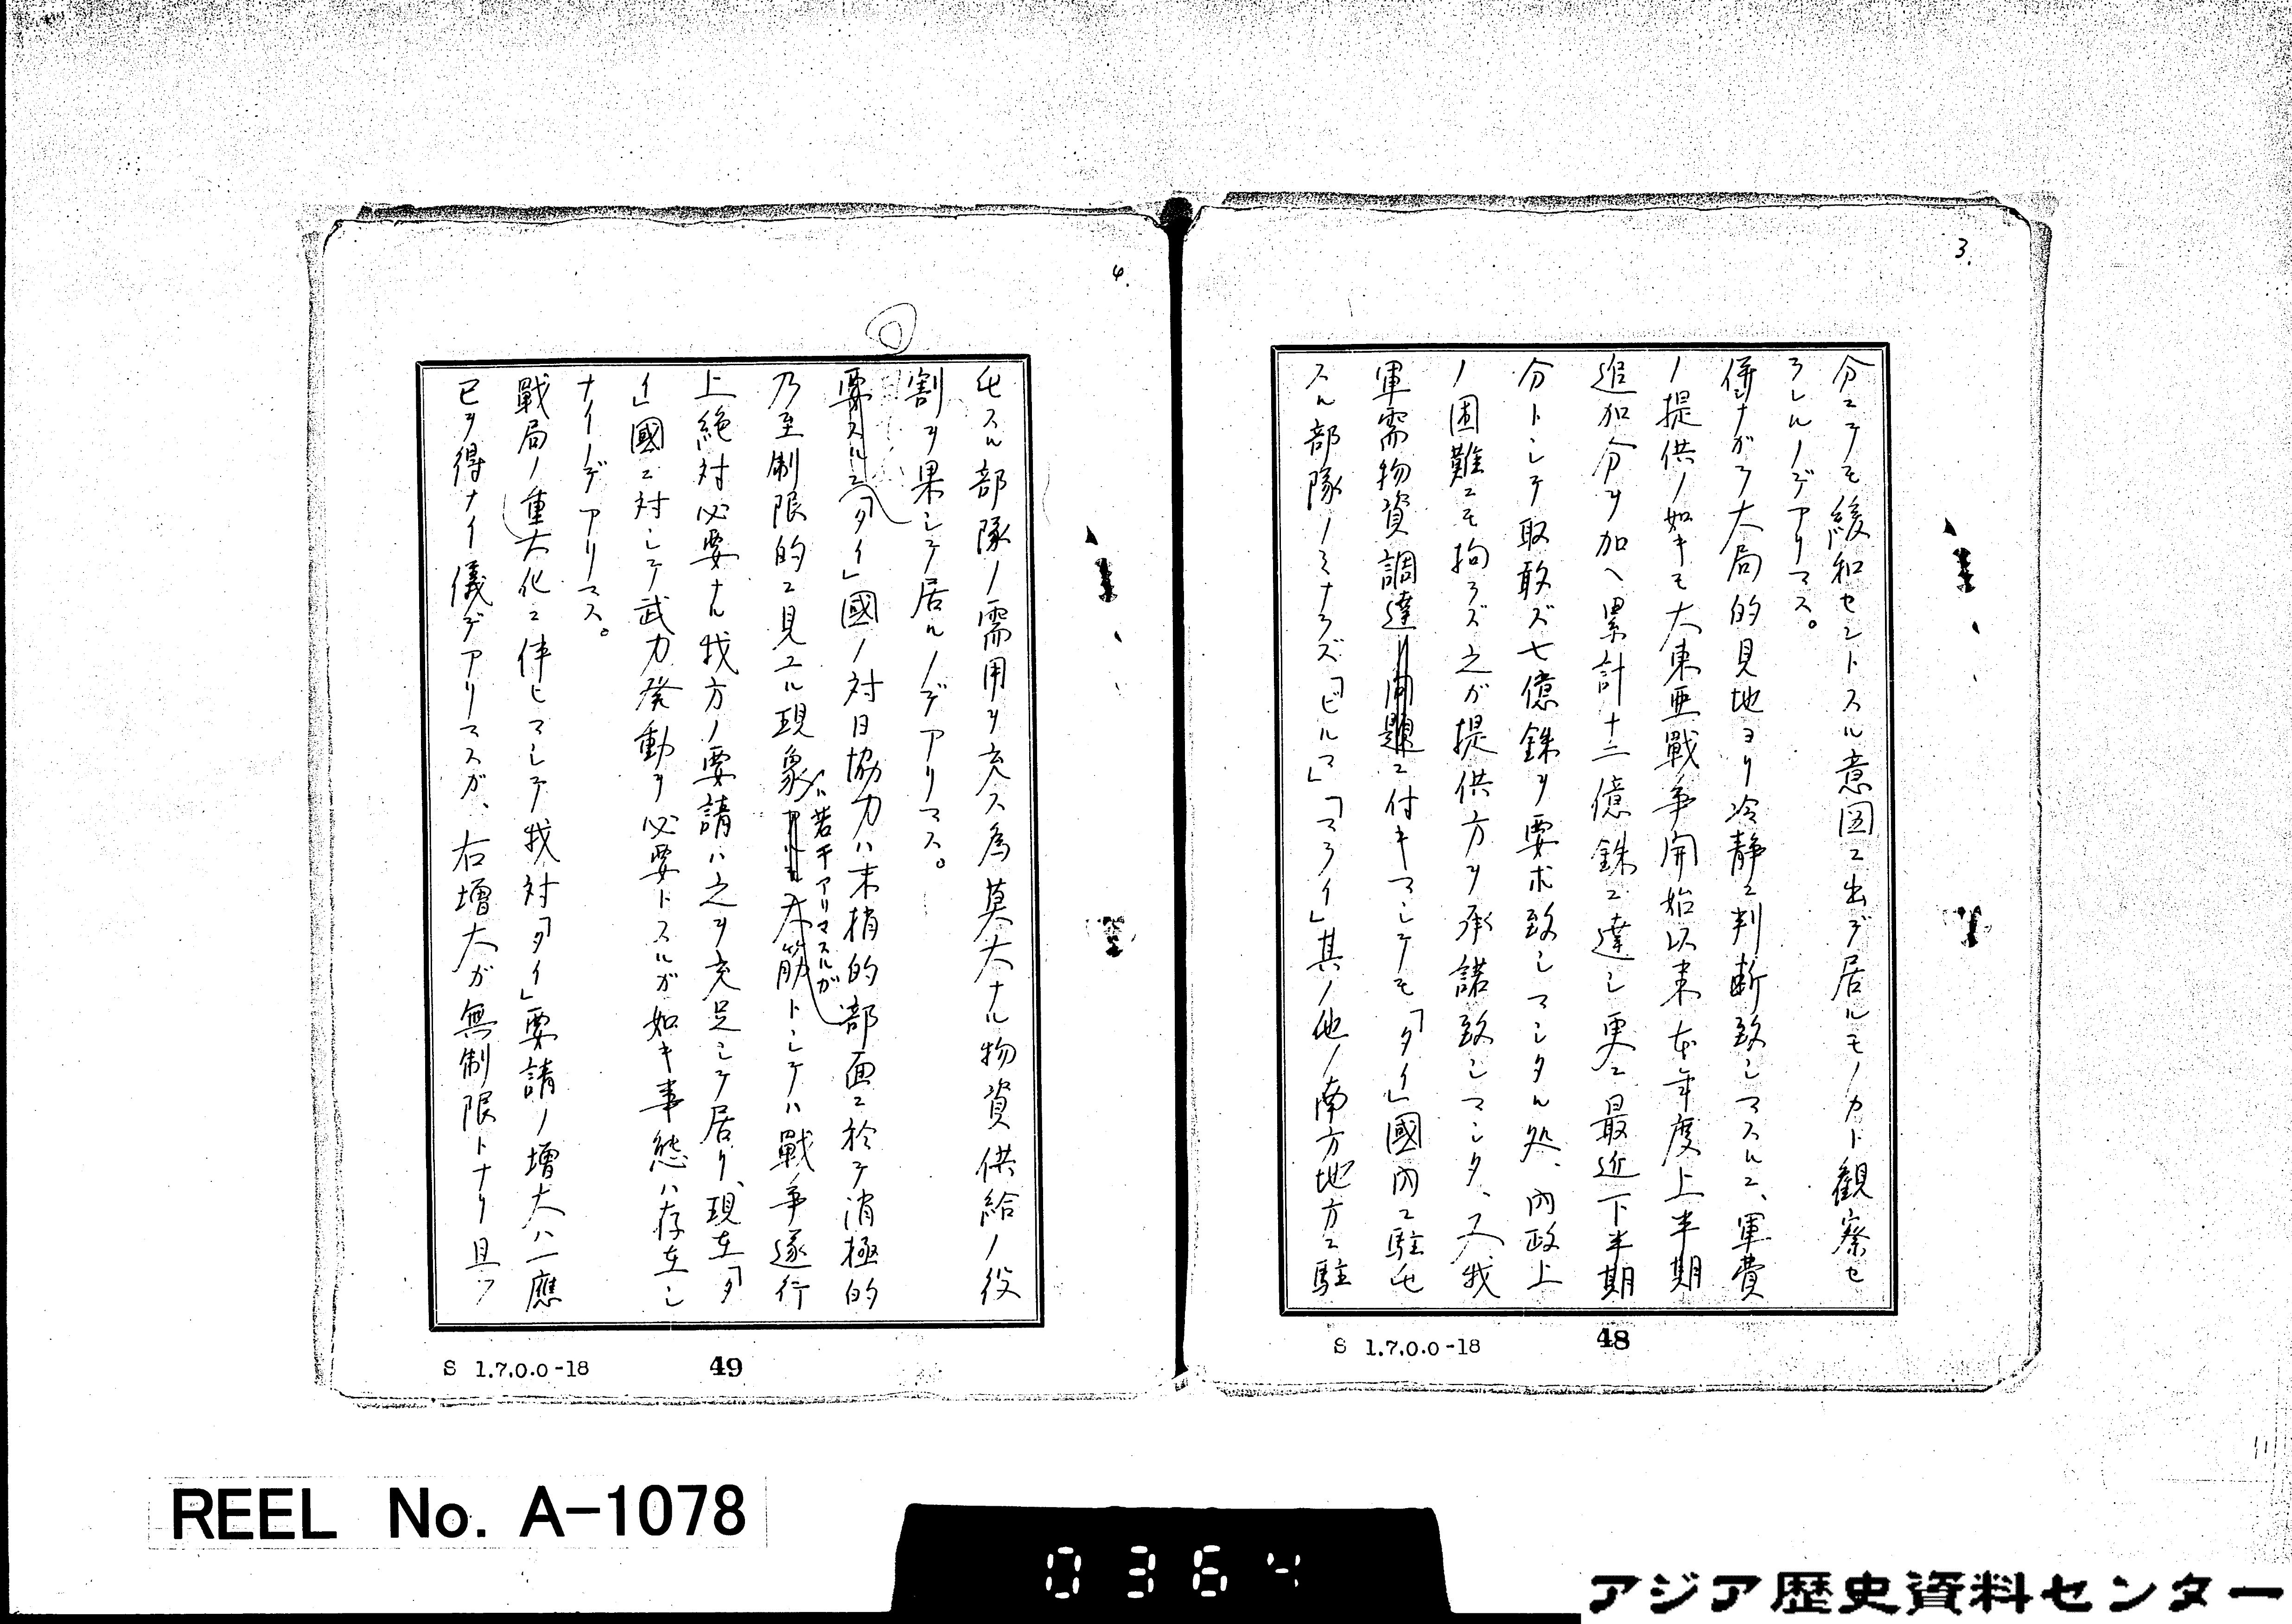 3.
分ニテモ緩和セントスル意図ニ出デ居ルモノカト観察セ
ラレルノデアリマス。
併ナガラ大局的見地ヨリ冷静ニ判断致シマスルニ、軍費
ノ提供ノ如キモ大東亜戰争開始以来本年度上半期
追加分ヲ加ヘ累計十二億銖ニ達シ更ニ最近下半期
分トシテ取敢ズ七億銖ヲ要求致シマシタル処、内政上
ノ困難ニモ拘ラズ之ガ提供方ヲ承諾致シマシタ、又我
軍需物資調達問題ニ付キマシテモ「タイ」國内ニ駐屯
スル部隊ノミナラズ「ビルマ」「マライ」其ノ他ノ南方地方ニ駐
S 1.7.0.0-18
48
4.
屯スル部隊ノ需用ヲ充ス為莫大ナル物資供給ノ役
割ヲ果シテ居ルノデアリマス。
要スルニ「タイ」國ノ対日協力ハ末梢的部面ニ於テ消極的
乃至制限的ニ見エル現象
ハ若干アリマスルガ
大筋トシテハ戰争遂行
上絶対必要ナル我方ノ要請ハ之ヲ充足シテ居リ、現在「タ
イ」國ニ対シテ武力発動ヲ必要トスルガ如キ事態ハ存在シ
ナイノデアリマス。
戰局ノ重大化ニ伴ヒマシテ我対「タイ」要請ノ増大ハ一應
已ヲ得ナイ儀デアリマスガ、右増大ガ無制限トナリ且ツ
S 1.7.0.0-18
49
REEL No. A-1078
0364
アジア歴史資料センター